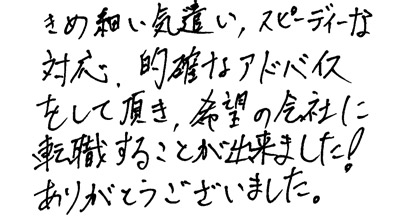 きめ細い気遣い，スピーディーな
対応、的確なアドバイス
をして頂き，希望の会社に
転職することが出来ました!
ありがとうございました。